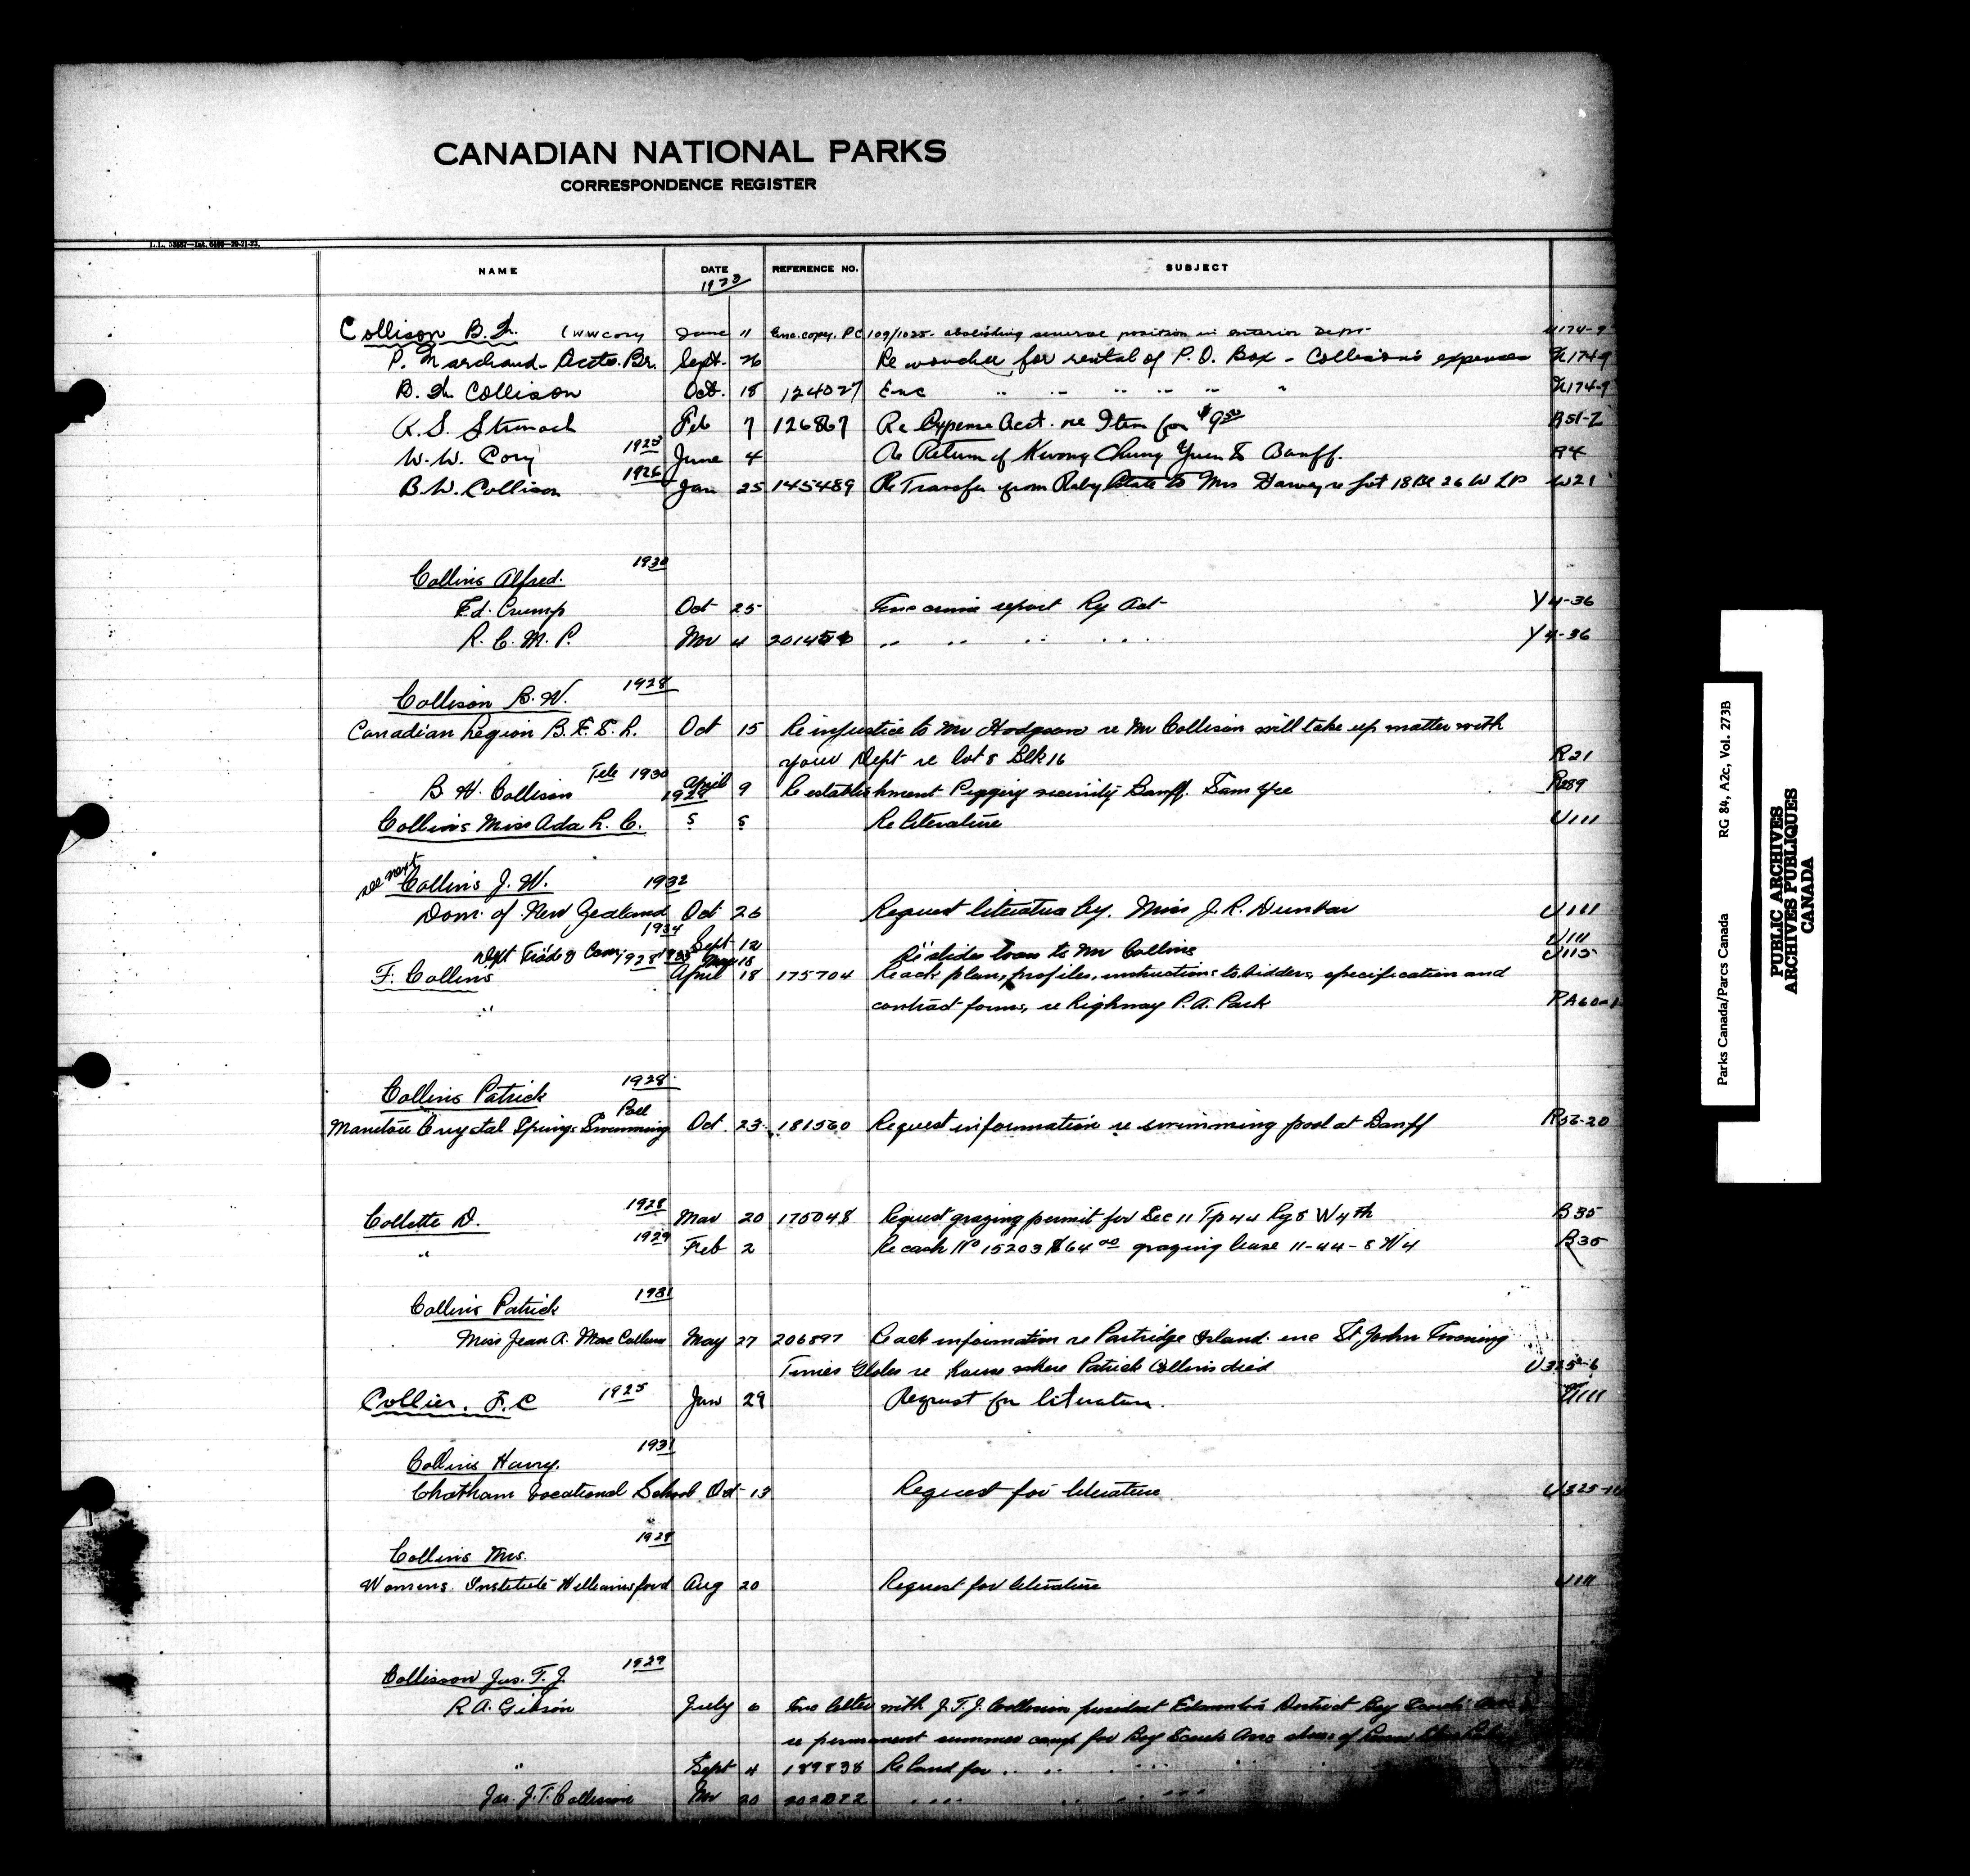 CANADIAN NATIONAL PARKS
CORRESPONDENCE REGISTER
NAME DATE REFERENCE NO. SUBJECT
Collison B. (W W Cory June 11 Enc. copy. P.C 109/1025 - abolishing several position in interior Dept
P. Marchand - Accts. Br. Sept. 26 Re voucher for rental of P. O. Box - Collison's expenses U174-9
B. Collison Oct. 18 124027 Enc " " " " " " U174-9
Feb 7 126867 Re Expense Acct. re Item for $9.50
W. W. Cory 1925 June 4 Re Return of Kwong Chung Yuen to Banff. B4
B. W. Collison 1926 Jan 25 145489 Re Transfer from to Mrs Harvey re Lot 18 Blk 26 W21
1930
Collins Alfred.
Ed. Crump Oct 25 Enc crime report Ry Act Y4-36
R. C. M. P. Nov 4 " " " " Y4-36
Collison B. W. 1928
Canadian Legion B. E. S. L. Oct 15 Re injustice to Mr Hodgson re Mr Collison will take up matter with
your Dept re lot 8 Blk 16 R21
Feb 1930
B. W. Collison April 9 Re establishment Piggery vicinity Banff. Sam Yee R89
Collins Miss Ada L. C. 5 Re literature U111
see next
Collins J. W. 1932
Dom. of New Zealand Oct 26 Request literature by. Miss J. R. Dunbar U111
1934 Sept 12 U111
Dept Trade & Com. 1935 18 Re slides loan to Mr Collins U115
F. Collins 1928 April 18 175704 Re ack plans, profiles, instructions to bidders, specification and
" contract forms, re highway P. A. Park
Collins Patrick 1928
Manitou Crystal Springs Swimming Pool Oct. 23 181560 Request information re swimming pool at Banff R56-20
1928
Collette D. Mar 20 175048 Request grazing permit for Sec 11 Tp 44 Rg 8 W 4th B35
" 1929 Feb 2 Re cash No 15203 $64.00 grazing lease 11-44-8 W4 B35
1931
Collins Patrick
Miss Jean A. Mac Callum May 27 206897 Re ack information re Partridge Island. enc St. John Evening
Times Globe re house where Patrick Collins died U325-6
Collier, F. C 1925 Jan 29 Request for literature. U111
1931
Collins Harry.
Chatham Vocational School Oct 13 Request for literature
Collins Mrs.
Womens Institute Williamsford Aug 20 Request for literature U111
Collisson Jas. T. J. 1929
R. A. Gibson July 6 Enc letter with J. T. J. Collisson president Edmonton District Boy Scouts
re permanent summer camp for Boy Scouts Assc
" Sept 4 189838 Re land for " " "
Jas. J. T. Collisson Nov 20 " " " "
Parks Canada/Parcs Canada RG 84, A2c, Vol. 273B
PUBLIC ARCHIVES
ARCHIVES PUBLIQUES
CANADA